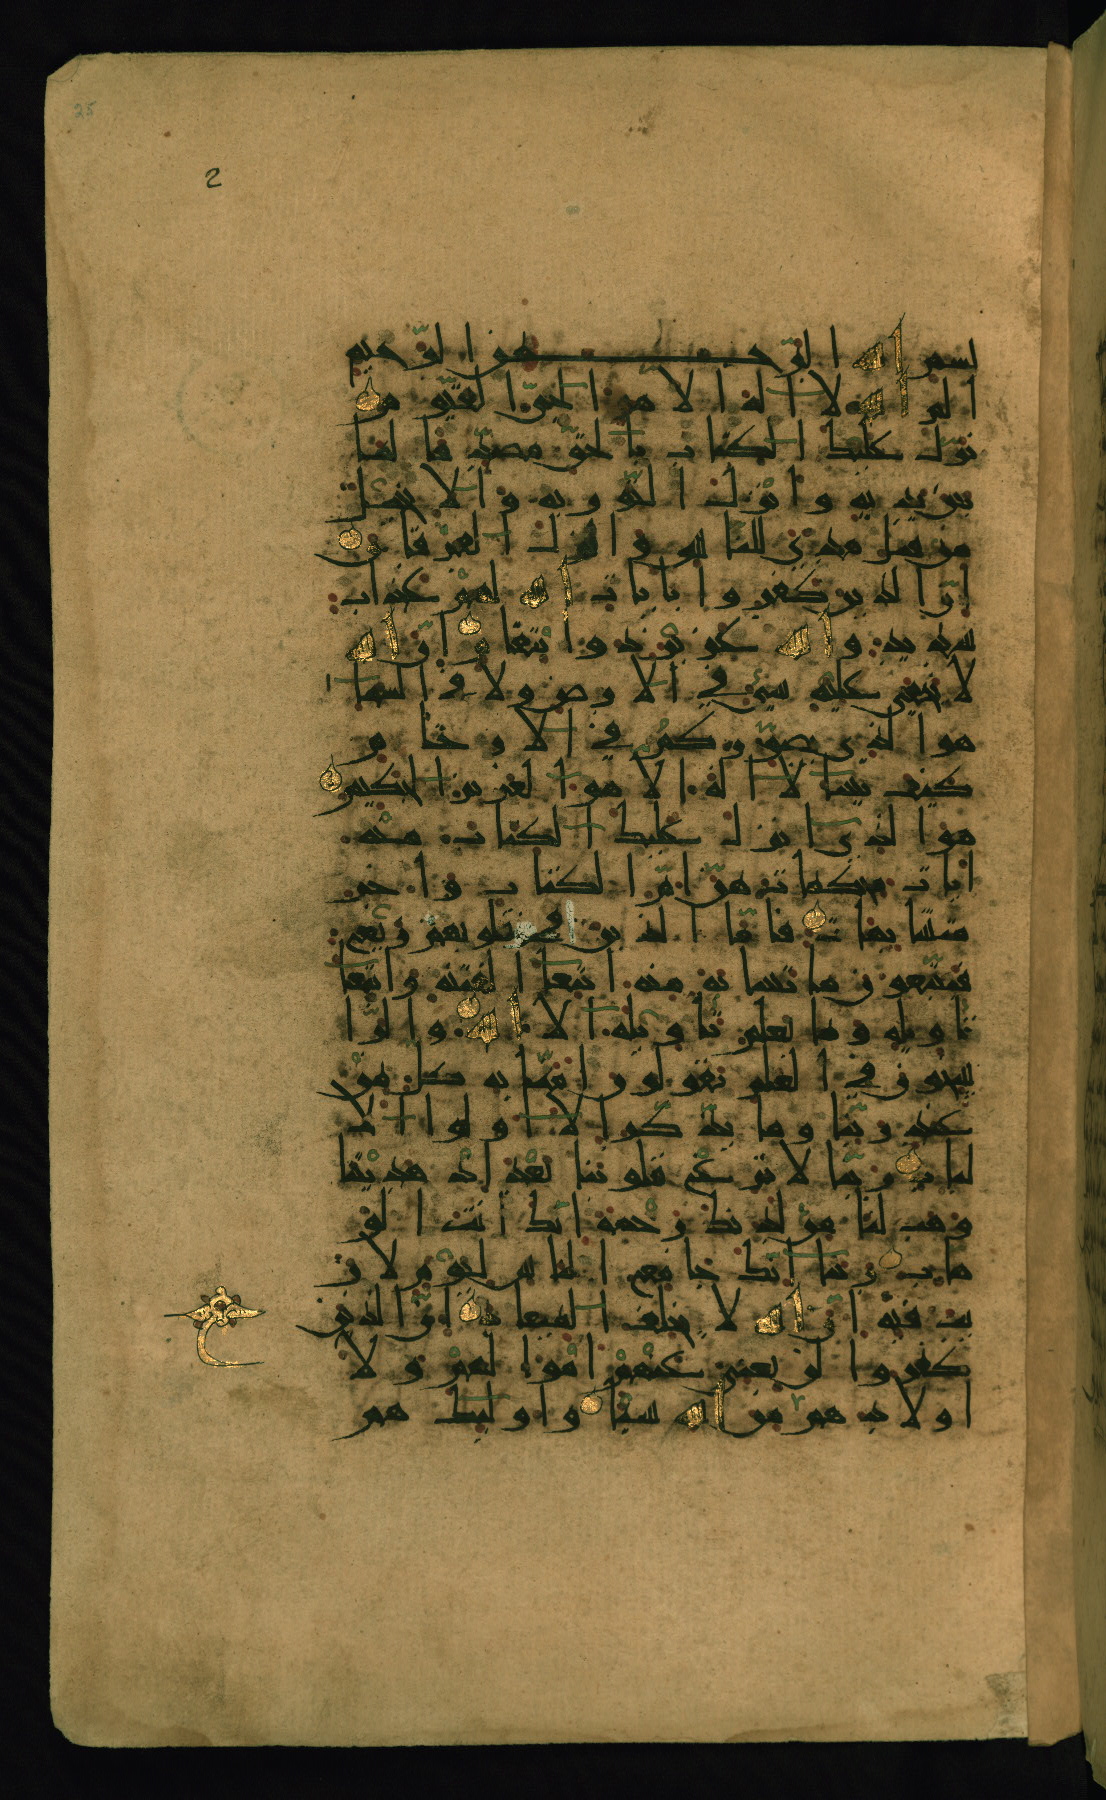 25
2
بسم الله الرحمن الرحيم
الم الله لا اله الا هو الحي القيوم
نزل عليك الكتاب بالحق مصدقا لما
بين يديه وانزل التورية والانجيل
من قبل هدى للناس وانزل الفرقان
ان الذين كفروا بايات الله لهم عذاب
شديد والله عزيز ذو انتقام ان الله
لا يخفى عليه شي في الارض ولا في السما
هو الذي يصوركم في الارحام
كيف يشا لا اله الا هو العزيز الحكيم
هو الذي انزل عليك الكتاب منه
ايات محكمات هن ام الكتاب واخر
متشابهات فاما الذين في قلوبهم زيغ
فيتبعون ما تشابه منه ابتغا الفتنه وابتغا
تاويله وما يعلم تاويله الا الله والرا
سخون في العلم يقولون امنا به كل من
عند ربنا وما يذكر الا اولوا الا
لباب ربنا لا تزغ قلوبنا بعد اذ هديتنا
وهب لنا من لدنك رحمه انك انت الو
هاب ربنا انك جامع الناس ليوم لا ر
يب فيه ان الله لا يخلف الميعاد ان الذين
كفروا لن تغني عنهم اموالهم ولا
اولادهم من الله شيا واوليك هم